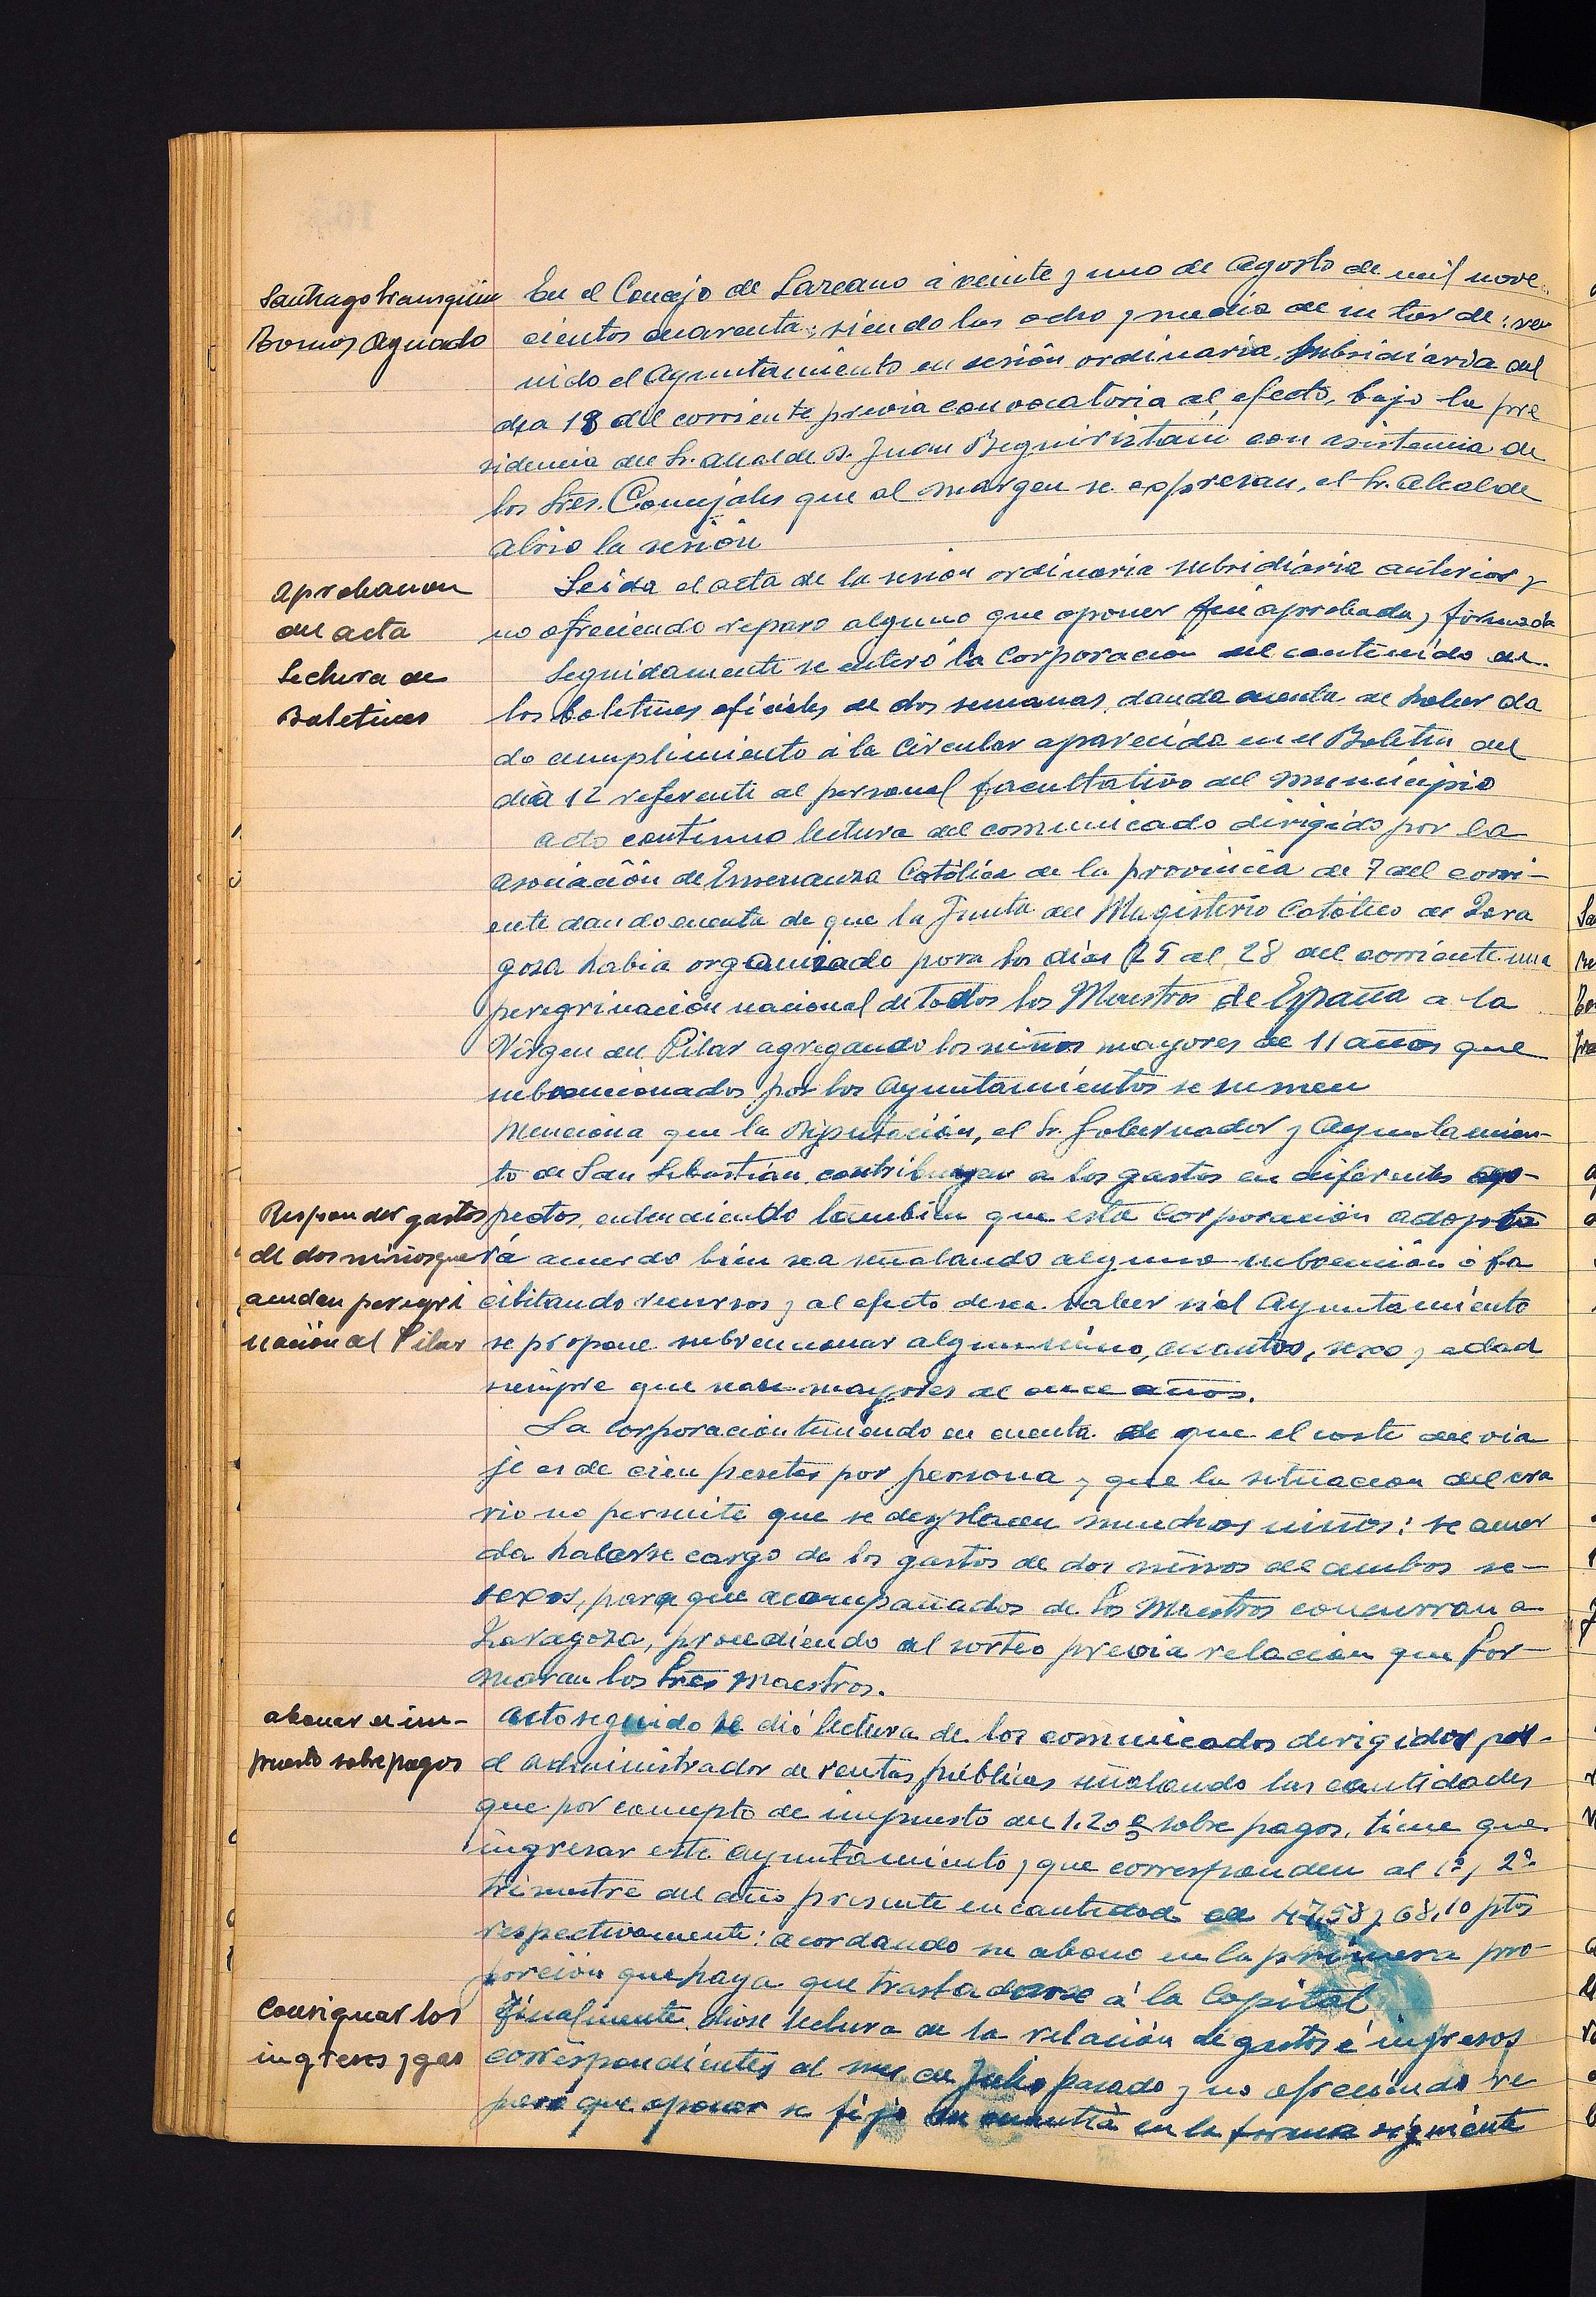 Santiago Iraurquiu
Bornos Aguado
En el Concejo de Lazcano á veinte y uno de Agosto de mil nove-
cientos cuarenta; siendo las ocho y media de su tarde: reu
nido el Ayuntamiento en sesión ordinaria, subsidiaria del
dia 18 del corriente previa convocatoria al efecto, bajo la pre
sidencia del Sr. Alcalde D. Juan Beguiristain con asistencia de
los Sres. Concejales que al margen se expresan, el Sr. Alcalde
abrio la sesión
Aprobacion
del acta
Leida el acta de la sesion ordinaria subsidiaria anterior y
no ofreciendo reparo alguno que oponer fue aprobada y firmada
Lectura de
Boletines
Seguidamente se enteró la Corporación del contenido de
los boletines oficiales de dos semanas, dando cuenta de haber da
do cumplimiento á la Circular aparecida en el Boletin del
dia 12 referente al personal facultativo del municipio
Acto continuo lectura del comunicado dirigido por la
Asociación de Ensenanza Católica de la provincia de 7 del corri-
ente dando cuenta de que la Junta del Magisterio Catolico de Zara
goza habia organizado para los dias 25 al 28 del corriente una
peregrinación nacional de todos los Maestros de España a la
Virgen del Pilar agregando los niños mayores de 11 años que
subvencionados por los Ayuntamientos se sumen
Menciona que la Diputación, el Sr. Gobernador y Ayuntamien-
to de San Sebastián contribuyen a los gastos en diferentes
Responder gastos
de dos niños que
acuden peregri
nación al Pilar
pectos, entendiendo tambien que esta Corporación adopta
rá acuerdo bien sea señalando alguna subvención ó fa
cilitando recursos y al efecto desea saber si el Ayuntamiento
se propone subvencionar algun niño, cuantos, sexo y edad
siempre que sean mayores de once años.
La Corporación teniendo en cuenta de que el coste del via
je es de cien pesetas por persona y que la situacion del era
rio no permite que se desplacen muchos niños: se acuer
da hacerse cargo de los gastos de dos niños de ambos se-
sexos, para que acompañados de los Maestros concurran a
Zaragoza, procediendo al sorteo previa relación que for-
maran los Sres Maestros.
abonar el im-
puesto sobre pagos
Acto seguido se dió lectura de los comunicados dirigidos por
el Administrador de rentas públicas señalando las cantidades
que por concepto de impuesto del 1.20 % sobre pagos, tiene que
ingresar este Ayuntamiento y que corresponden al 1º y 2º
trimestre del año presente en cantidad de 47,58 y 68,10 ptas
respectivamente: acordando su abono en la primera pro-
porción que haya que trasladarse á la Capital
Consignar los
ingresos y gas
Finalmente, diose lectura de la relación de gastos é ingresos
correspondientes al mes de Julio pasado y no ofreciendo re
paro que oponer se fijó su cuantía en la forma siguiente